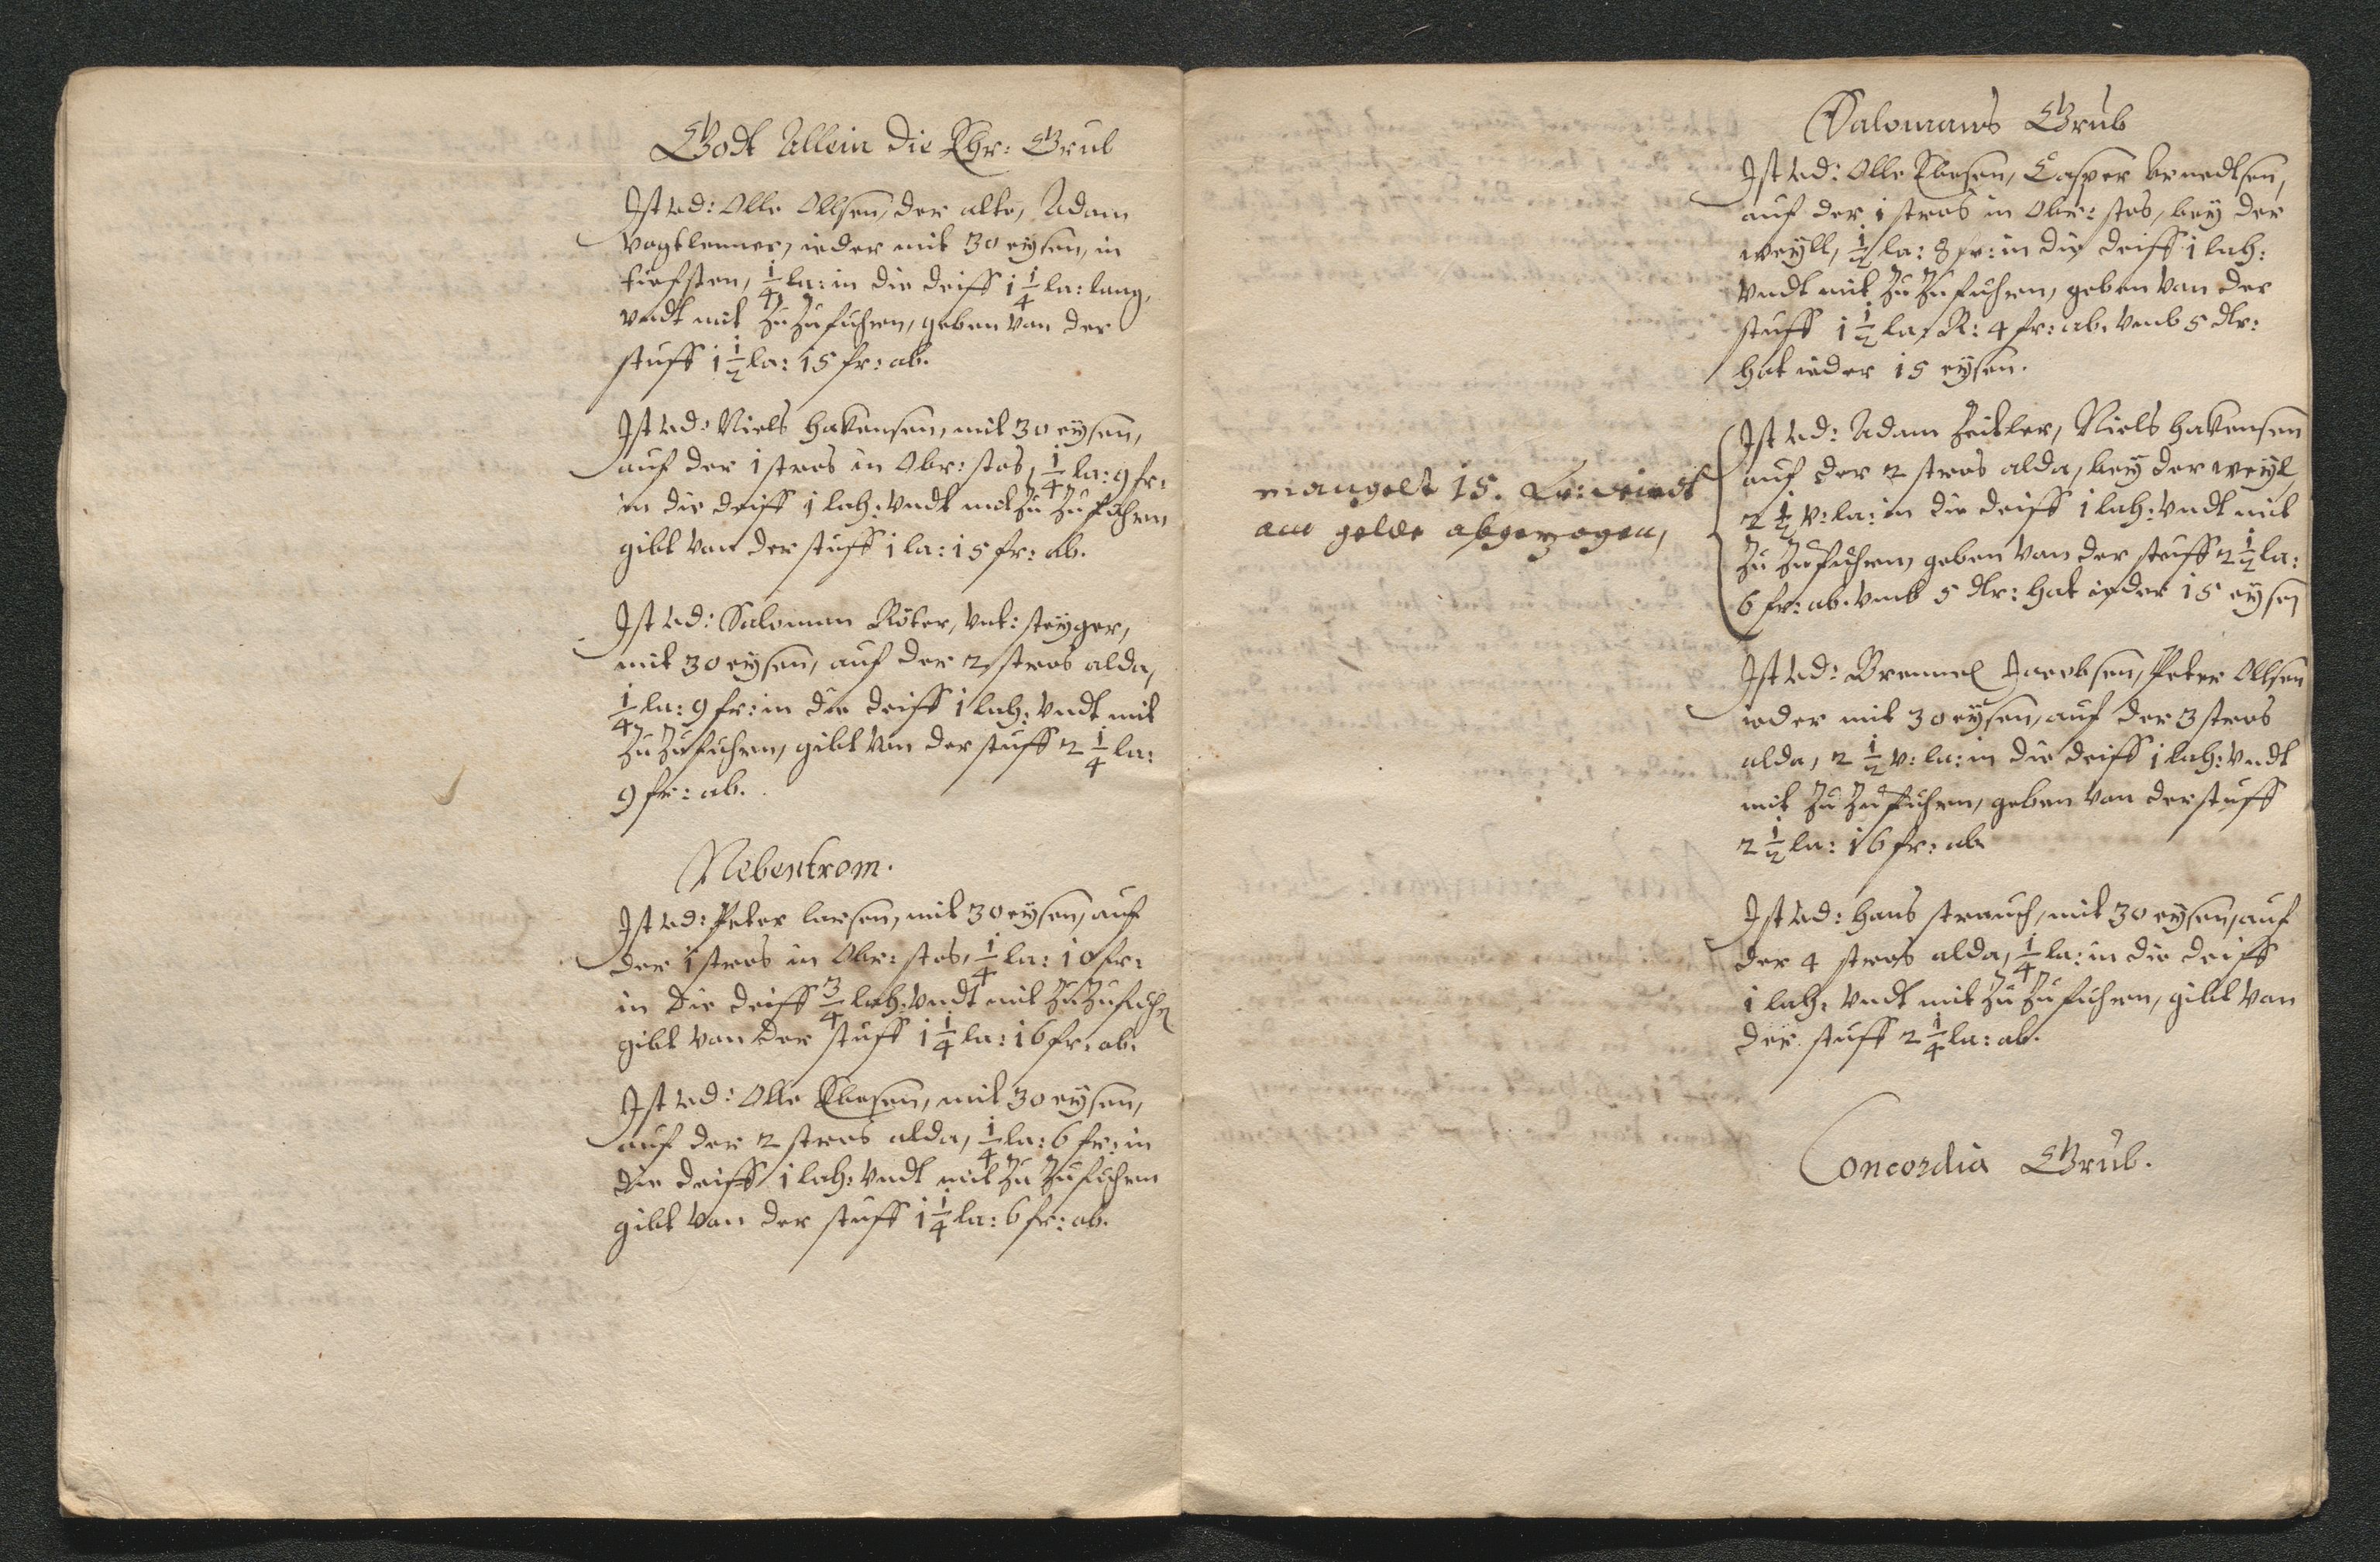 Godt Allein die Ehr: Grub
Ist vd: Olle Ollsen, der alte, Adam
Vogtlenner, ieder mit 30 eysen, in
tiefsten, 1/4 la: in die deiff 1 1/4 la: lang,
vndt mit Zu Zufuhren, geben Van der
stuff 1 1/2 la: 15 fr: ab.
Ist vd: Niels Hakensen, mit 30 eysen,
auf der 1 stros in Obr: stos, 1/4 la: 9 fr:
in die deiff 1 lah: Vndt mit Zu Zufuhren
gibt Van der stuff 1 la: 15 fr: ab.
Ist vd: Saloman Röter, Vnt: steyger,
mit 30 eysen, auf der 2 stros alda,
1/4 la: 9 fr: in die deiff 1 lah: Vndt mit
Zu Zufuhren, gibt Van der stuff 2 1/4 la:
9 fr: ab.
Nebentrom.
Ist vd: Peter larsen, mit 30 eysen, auf
der 1 stros in Obr: stos, 1/4 la: 10 fr:
in die deiff 3/4 lah: Vndt mit Zu Zufuhrn
gibt Van der stuff 1 1/4 la: 16 fr: ab.
Ist vd: Olle Ebesen, mit 30 eysen,
auf der 2 stros alda, 1/4 la: 6 fr: in
die deiff 1 lah: Vndt mit Zu Zufuhren
gibt Van der stuff 1 1/4 la: 6 fr: ab.
Salomans Grub
Ist vd: Olle Ebesen, Casper benedtsen,
auf der 1 stros in Obr: stos, bey der
weyll, 1/2 la: 8 fr: in die deiff 1 lah:
Vndt mit Zu Zufuhren, geben Van der
stuff 1 1/2 la: R: 4 fr: ab. Vmb 5 dlr:
hat ieder 15 eysen.
mangelt 15.
am gelde abgezogen,
Ist vd: Adam Zeitler, Niels Hakensen
auf der 2 stros alda, bey der weyl,
2 1/2 v: la: in die deiff 1 lah: Vndt mit
Zu Zufuhren, geben Van der stuff 2 1/2 la:
6 fr: ab. Vmb 5 dlr: hat ieder 15 eysen
Ist vd: Bremmel Jacobsen, Peter Ollsen
ieder mit 30 eysen, auf der 3 stros
alda, 2 1/2 v: la: in die deiff 1 lah: Vndt
mit Zu Zufuhren, geben Van der stuff
2 1/2 la: 16 fr: ab.
Ist vd: Hans strauch, mit 30 eysen, auf
der 4 stros alda, 1/4 la: in die deiff
1 lah: Vndt mit Zu Zufuhren, gibt Van
der stuff 2 1/4 la: ab.
Concordia Grub.